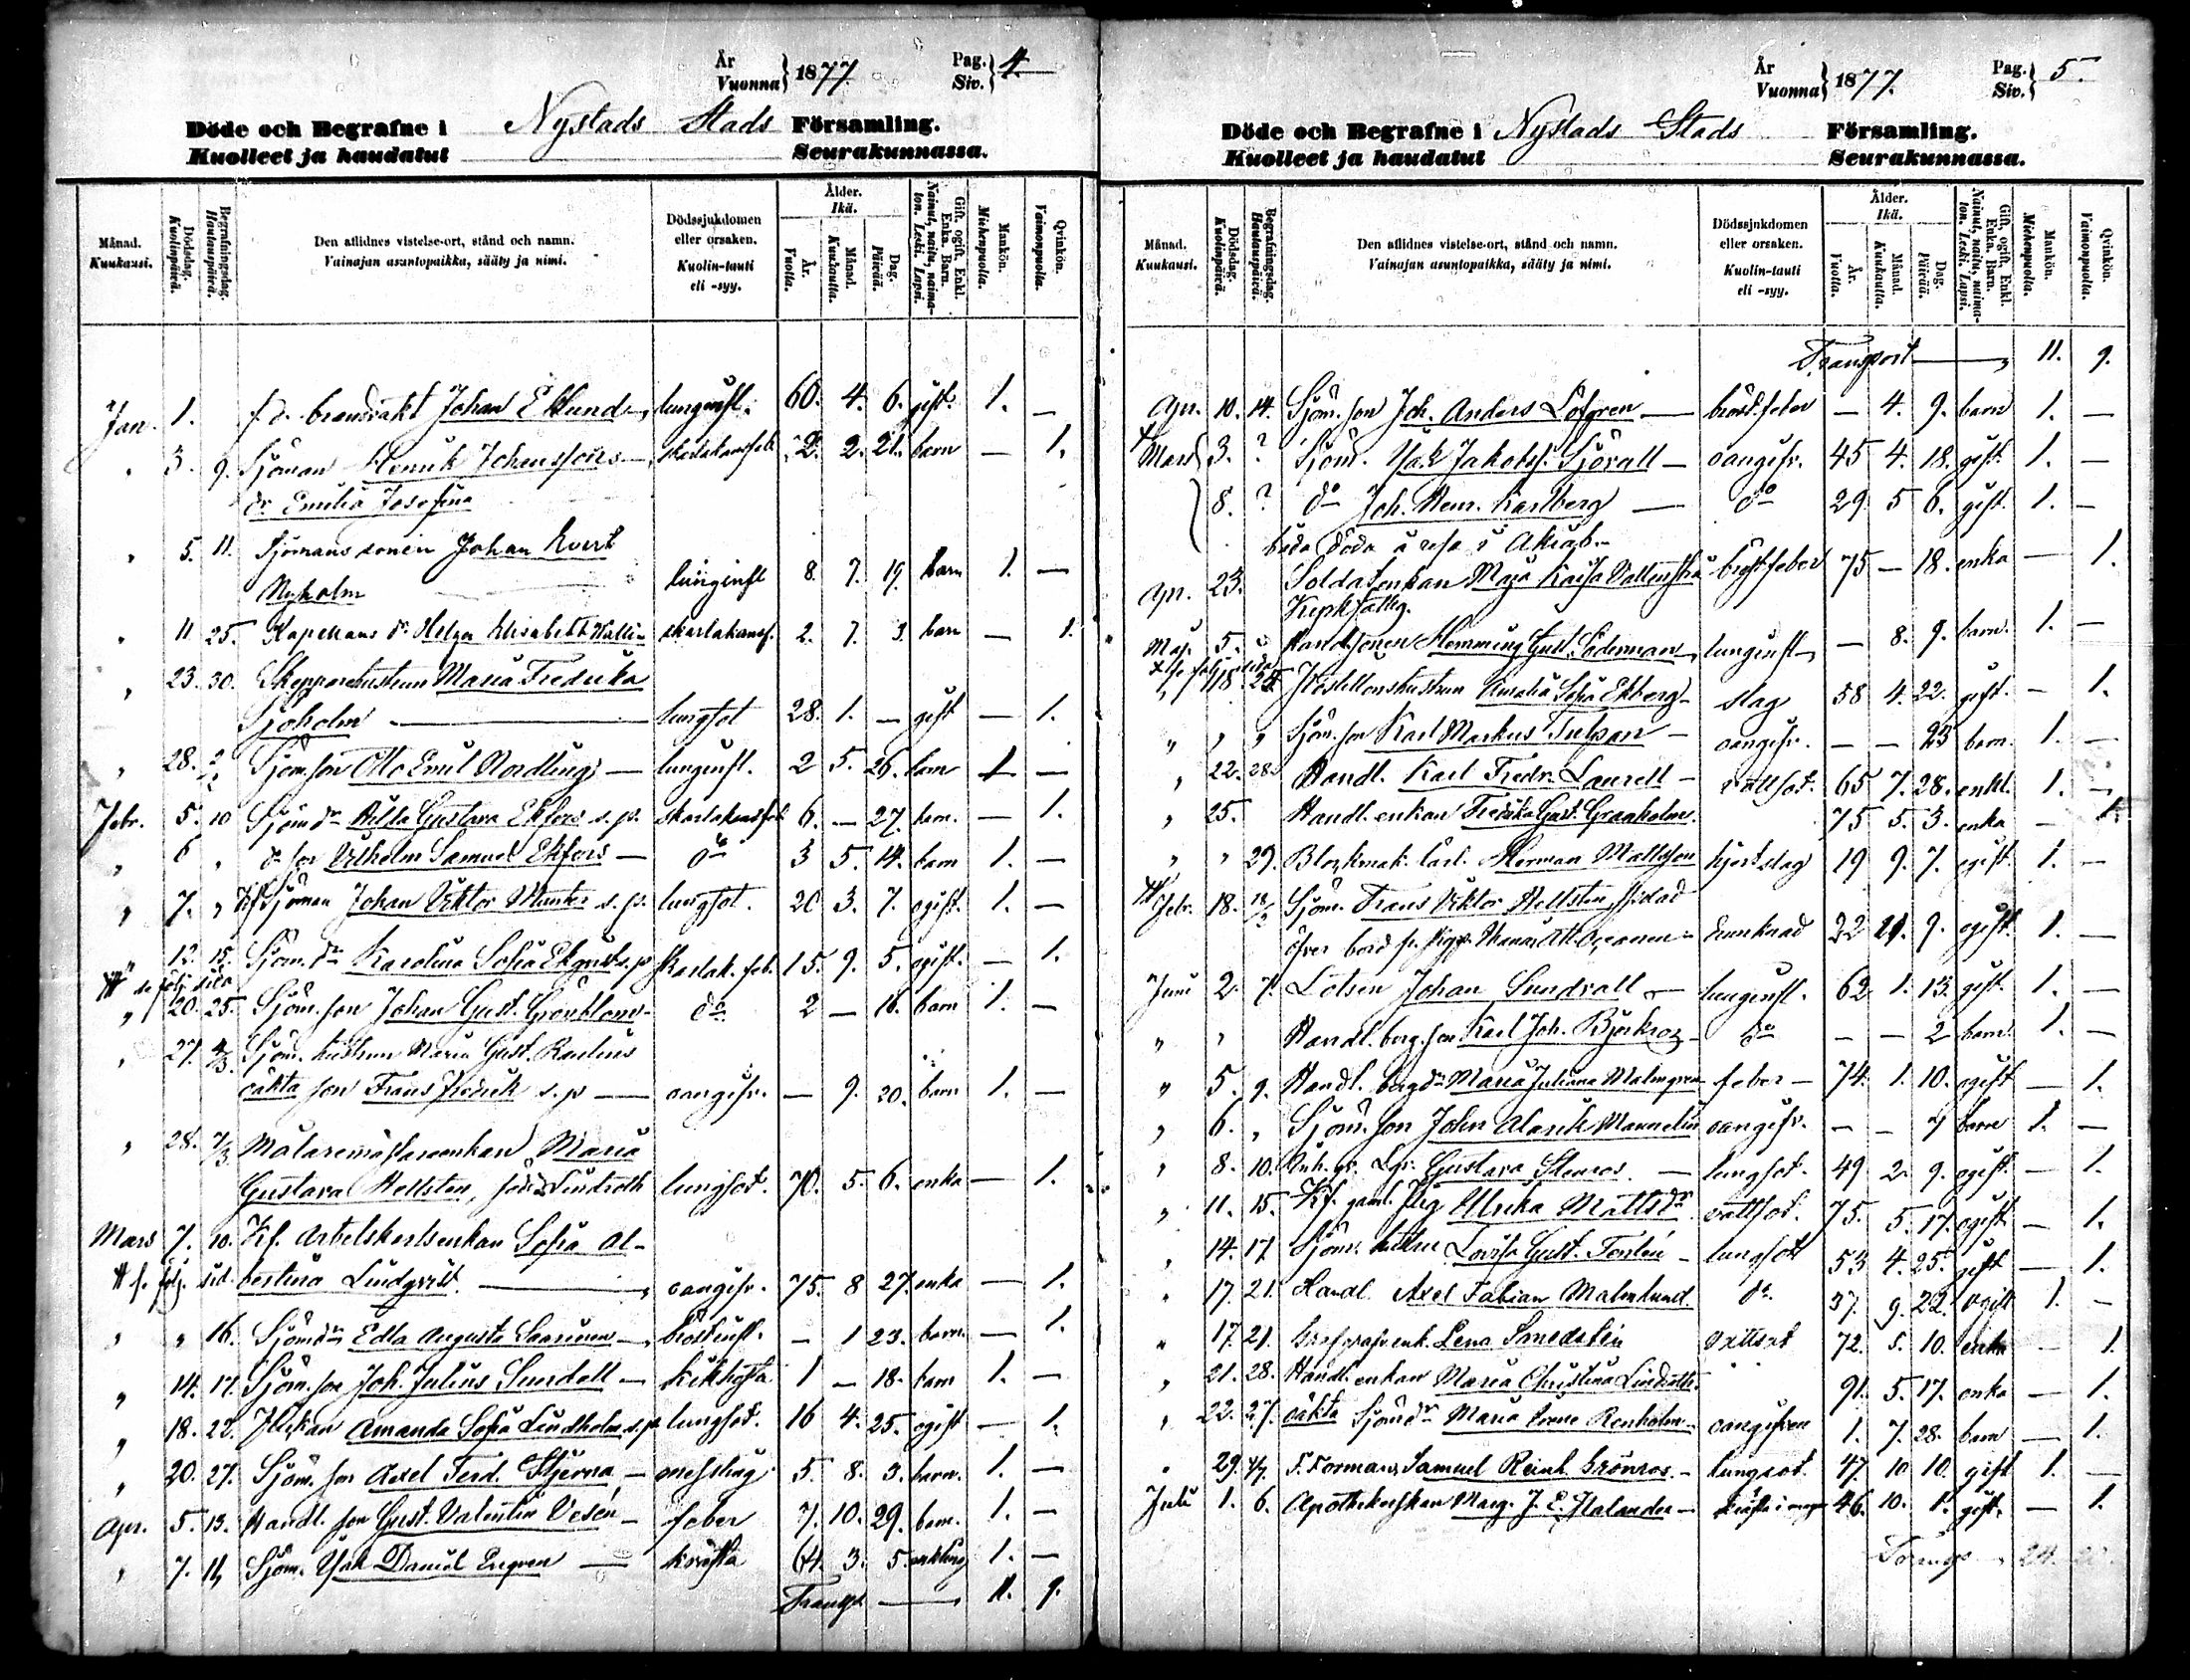 År
Vuonna } 1877. Pag. Siv. } 4.
Döde och Begrafne i Nystads Stads Församling.
Kuolleet ja haudatut Seurakunnassa.
Månad. Kuukausi.
Dödsdag. Kuolinpäivä.
Begrafningsdag. Hautauspäivä.
Den aflidnes vistelse-ort, stånd och namn.
Vainajan asuntopaikka, sääty ja nimi.
Dödssjukdomen eller orsaken.
Kuolin-tauti eli -syy.
Ålder. Ikä.
År. Vuotta.
Månad. Kuukautta.
Dag. Päivää.
Gift, ogift, Enkl. Enka. Barn.
Nainut, naitu, naimaton. Leski. Lapsi.
Mankön. Miehenpuolta.
Qvinkön. Vaimonpuolta.
Jan. 1. f. d. brandvakt Johan Eklund lunginfl. 60. 4. 6. gift. 1. —
" 3. 9. Sjöman Henrik Johanssons skarlakansfeb. 2. 2. 21. barn — 1.
dr Emilia Josefina
" 5. 11. Sjömans sonen Johan Evert
Nyholm lunginfl 8. 7. 19. barn 1. —
" 11. 25. Kapellans dr Helga Elisabeth skarlakansf. 2. 7. 3. barn — 1.
" 23. 30. Skepparehustrun Maria Fredrika
Sjöholm — lungsot 28. 1. — gift — 1.
" 28. 2/2 Sjöm. son Otto Emil Nordling — lunginfl. 2 5. 26. barn 1 —
Febr. 5. 10 Sjöm dr Hilda Gustava Ekfors s. p. skarlakansfeb 6. — 27. barn. — 1.
" 6 " do son Vilhelm Samuel Ekfors — do 3 5. 14. barn 1. —
" 7. " Sjöman Johan Viktor Munter s. p. lungsot. 20 3. 7. ogift. 1. —
" 12. 15. Sjöm. dr Karolina Sofia Ekqvist s. p skarlak. feb. 15. 9. 5. ogift. — 1.
# se följ. sida
" 20. 25. Sjöm. son Johan Gust. Grönblom do 2 — 16. barn 1. —
" 27. 4/3. Sjöm. hustrun Maria Gust. Rautius
oäkta son Frans Fredrik s. p — oangifv. — 9. 20. barn 1. —
" 28. 7/3. Målaremästareenkan Maria
Gustava Hellsten, född Lindroth lungsot. 70. 5. 6. enka — 1.
Mars 7. 10. Kf. Arbetskarlsenkan Sofia Al-
# s. följ. sid. bertina Lindqvist. — oangifv. 75. 8 27. enka — 1.
" " 16. Sjöm dr Edla Augusta Saarinen — bröstinfl. — 1 23. barn. — 1.
" 14. 17. Sjöm. son Joh. Julius Sundell — kikhosta 1 — 18. barn 1. —
" 18. 22. Flickan Amanda Sofia Lindholm s. p lungsot. 16 4. 25. ogift — 1.
" 20. 27. Sjöm. son Axel Ferd. Stjerna — messling 5. 8. 3. barn. 1. —
Apr. 5. 13. Handl. son Gust. Valentin Vesén — feber 7. 10. 29. barn. 1. —
" 7. 11, Sjöm. Isak Daniel Engren — kräfta 64. 3. 5. enkling 1. —
Transp. — 11. 9.
År
Vuonna } 1877. Pag. Siv. } 5.
Döde och Begrafne i Nystads Stads Församling.
Kuolleet ja haudatut Seurakunnassa.
Månad. Kuukausi.
Dödsdag. Kuolinpäivä.
Begrafningsdag. Hautauspäivä.
Den aflidnes vistelse-ort, stånd och namn.
Vainajan asuntopaikka, sääty ja nimi.
Dödssjukdomen eller orsaken.
Kuolin-tauti eli -syy.
Ålder. Ikä.
År. Vuotta.
Månad. Kuukautta.
Dag. Päivää.
Gift, ogift, Enkl. Enka. Barn.
Nainut, naitu, naimaton. Leski. Lapsi.
Mankön. Miehenpuolta.
Qvinkön. Vaimonpuolta.
Transport — 11. 9.
Apr. 10. 14. Sjöm. son Joh. Anders Löfgren — bröst.feber — 4. 9. barn 1. —
Mars 3. ? Sjöm. Isak Jakobsf. Sjövall — oangifv. 45 4. 18. gift. 1. —
8. ? do Joh. Henr. Karlberg — do 29. 5 6. gift. 1. —
båda döda å resa i Akiab.
Apr. 23. Soldatenkan Maja Kaisa Vallenstrå bröstfeber 75 — 18. enka — 1.
Kyrkfattig.
Maj. 5. " Handl. sonen Hemming Gust. Söderman lunginfl — 8. 9. barn. 1. —
x se följ. sida
" 18. 25. Postillonshustrun Amalia Sofia Ekberg — slag 58 4. 22. gift. — 1.
" " " Sjöm. son Karl Markus Tulpan — oangifv. — — 23 barn. 1. —
" 22. 28. Handl. Karl Fredr. Laurell — vattsot. 65 7. 28. enkl. 1. —
" 25. Handl. enkan Fredrika Gust. Granholm. 75 5. 3. enka — 1.
" " 29. Blockmak. lärl. Herman Mattsson hjertslag 19 9. 7. ogift. 1. —
# Febr. 18. 18/2 Sjöm. Frans Viktor Hellsten,
öfver bord fr. Atl. Oceanen — drunknad 22 11. 9. ogift. 1. —
Juni 2. 7. Lotsen Johan Sundvall — lunginfl. 62 1. 13. gift. 1. —
" " Handl. borg. son Karl Joh. Björkroz — do — — 2 barn. 1. —
" 5. 9. Handl. borg dr Maria Juliana Malmgren feber — 74. 1. 10. ogift — 1.
" 6. " Sjöm. son John Alarik Mannelin oangifv. — — 7 barn 1. —
" 8. 10. Inh. gr. Lgr. Gustava Stenros. — lungsot. 49 2. 9. ogift. — 1.
" 11. 15. Kf. gaml. pig Ulrika Mattsdr vattsot. 75. 5. 17. ogift. — 1.
" 14. 17 Sjöm. hustru Lovisa Gust. Forslin — lungsot 53 4. 25. gift — 1.
" 17. 21. Handl. Axel Fabian Malmlund. do 37. 9. 22. ogift 1. —
" 17. 21. enk. Lena Smedstén vattsot 72. 5. 10. enka — 1.
" 21. 28. Handl. enkan Maria Christina Lindroth 91. 5. 17. enka — 1.
" 22. 27. oäkta Sjöm dr Maria Irene Renholm oangifven 1. 7. 28. barn — 1.
" 29. 4/7. F. Forman Samuel Reinh. Grönros. — lungsot. 47 10 10. gift 1. —
Juli 1. 6. Apothekerskan Marg. J. E. Jtalander — kräfta i 46. 10. 1. gift. — 1.
Transp. 24. 20.